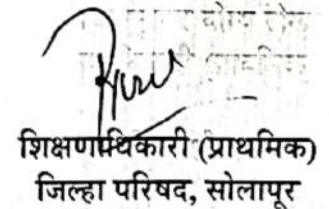 शिक्षणाधिकारी (प्राथमिक)
जिल्हा परिषद, सोलापूर